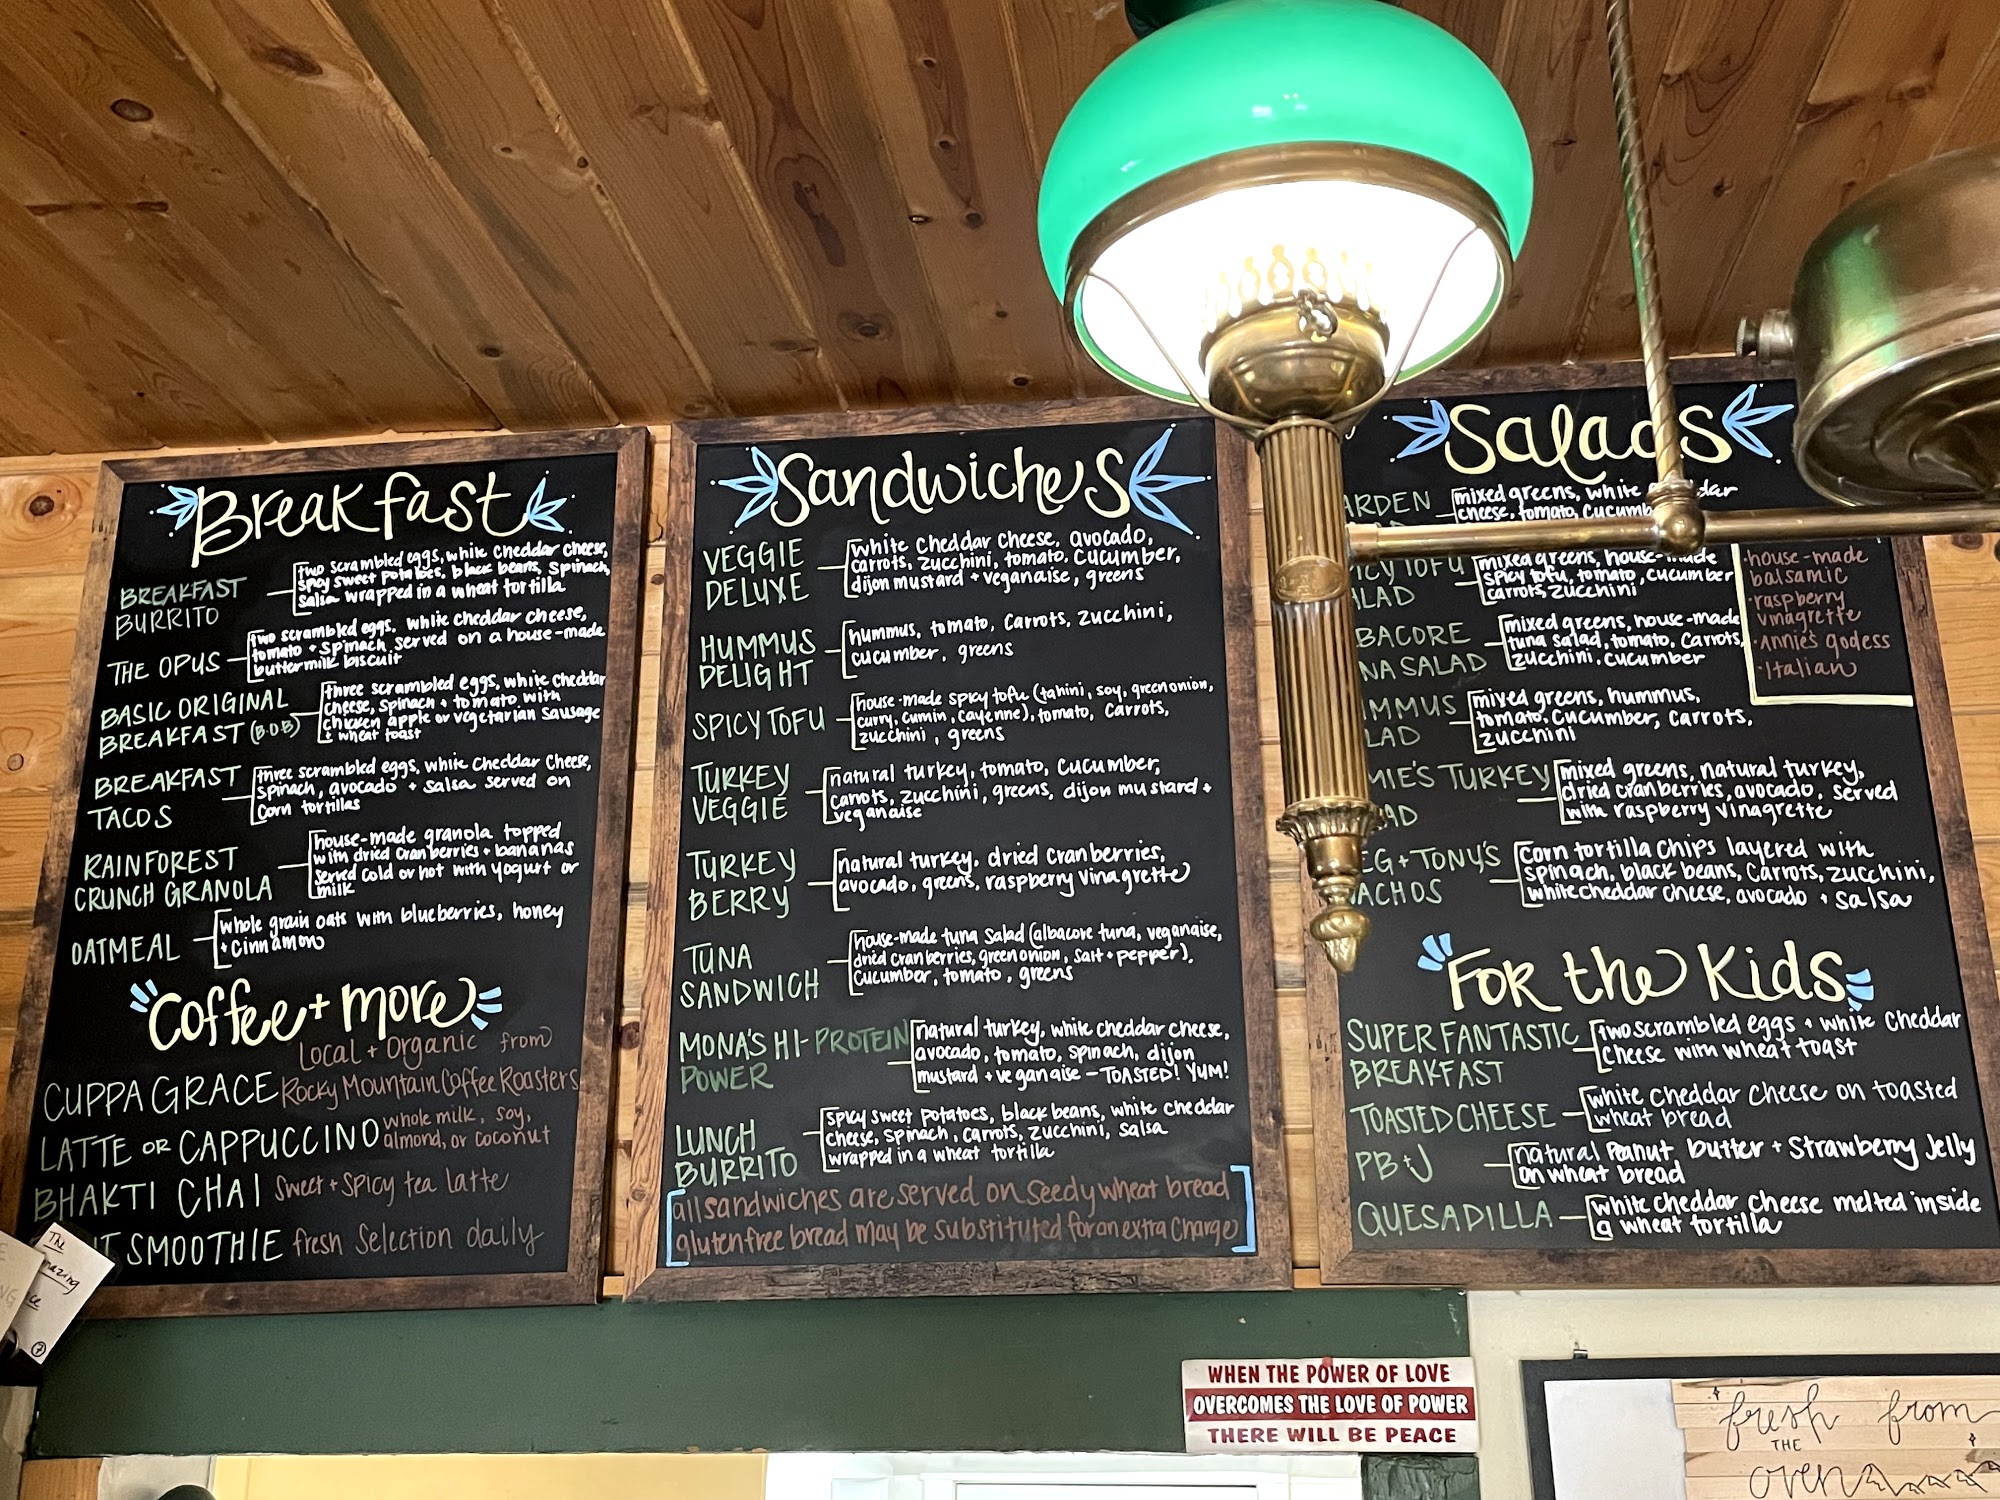 Breakfast
BREAKFAST
BURRITO
two scrambled eggs, white cheddar cheese,
spicy sweet potatoes, black beans, spinach,
salsa wrapped in a wheat tortilla
THE OPUS
two scrambled eggs, white cheddar cheese,
tomato + spinach served on a house-made
buttermilk biscuit
BASIC ORIGINAL
BREAKFAST (B.O.B)
three scrambled eggs, white cheddar
cheese, spinach + tomato with
chicken apple or vegetarian sausage
+ wheat toast
BREAKFAST
TACOS
three scrambled eggs, white cheddar cheese,
spinach, avocado + salsa served on
corn tortillas
RAINFOREST
CRUNCH GRANOLA
house-made granola topped
with dried cranberries + bananas
served cold or hot with yogurt or
milk
OATMEAL
whole grain oats with blueberries, honey
+ cinnamon
Coffee + more
CUPPA GRACE
Local + Organic from
Rocky Mountain Coffee Roasters
LATTE OR CAPPUCCINO
whole milk, soy,
almond, or coconut
BHAKTI CHAI sweet + spicy tea latte
SMOOTHIE fresh selection daily
Sandwiches
VEGGIE
DELUXE
white cheddar cheese, avocado,
carrots, zucchini, tomato, cucumber,
dijon mustard + veganaise, greens
HUMMUS
DELIGHT
hummus, tomato, carrots, zucchini,
cucumber, greens
SPICY TOFU
house-made spicy tofu (tahini, soy, green onion,
curry, cumin, cayenne), tomato, carrots,
zucchini, greens
TURKEY
VEGGIE
natural turkey, tomato, cucumber,
carrots, zucchini, greens, dijon mustard +
veganaise
TURKEY
BERRY
natural turkey, dried cranberries,
avocado, greens, raspberry vinagrette
TUNA
SANDWICH
house-made tuna salad (albacore tuna, veganaise,
dried cranberries, green onion, salt + pepper),
cucumber, tomato, greens
MONA'S HI-PROTEIN
POWER
natural turkey, white cheddar cheese,
avocado, tomato, spinach, dijon
mustard + veganaise - TOASTED! YUM!
LUNCH
BURRITO
spicy sweet potatoes, black beans, white cheddar
cheese, spinach, carrots, zucchini, salsa
wrapped in a wheat tortilla
all sandwiches are served on seedy wheat bread
gluten free bread may be substituted for an extra charge
Salads
ARDEN
mixed greens, white
cheese, tomato, cucumb
ICY TOFU
LAD
mixed greens, house-made
spicy tofu, tomato, cucumber
carrots, zucchini
BACORE
NA SALAD
mixed greens, house-made
tuna salad, tomato, carrots,
zucchini, cucumber
MMUS
LAD
mixed greens, hummus,
tomato, cucumber, carrots,
zucchini
MIE'S TURKEY
AD
mixed greens, natural turkey,
dried cranberries, avocado, served
with raspberry vinagrette
EG + TONY'S
ACHOS
Corn tortilla chips layered with
spinach, black beans, carrots, zucchini,
white cheddar cheese, avocado + salsa
·house-made
balsamic
·raspberry
vinagrette
·Annie's godess
·Italian
For the Kids
SUPER FANTASTIC
BREAKFAST
two scrambled eggs + white cheddar
cheese with wheat toast
TOASTED CHEESE
white cheddar cheese on toasted
wheat bread
PB+J
natural peanut butter + strawberry jelly
on wheat bread
QUESADILLA
white cheddar cheese melted inside
a wheat tortilla
The
WHEN THE POWER OF LOVE
OVERCOMES THE LOVE OF POWER
THERE WILL BE PEACE
fresh from
THE
oven